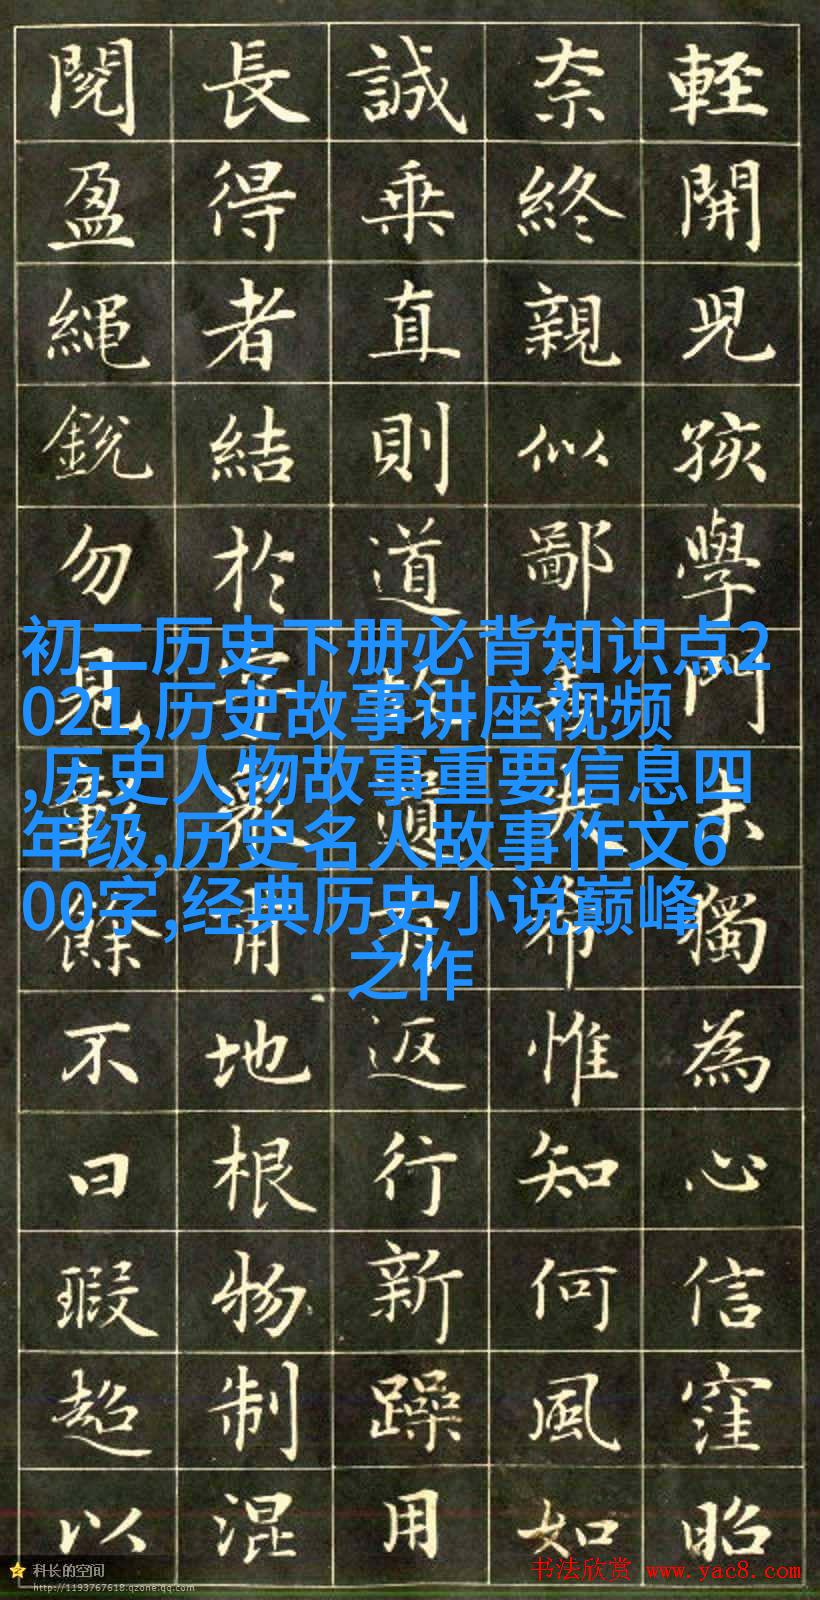 開兒孩學門獨為心信窪昭
奈終親似鄙希惟知何風如
誠乘直則道故遺有返行新躁用
長得者結於用地根物制混
閱盈繩銳勿見餘不曰瑕超以
初二历史下册必背知识点2
021,历史故事讲座视频
,历史人物故事重要信息四
年级,历史名人故事作文6
00字,经典历史小说巅峰
之作
科长的空间
http://1193767618.qzone.qq.com
书法欣赏 www.yac8.com